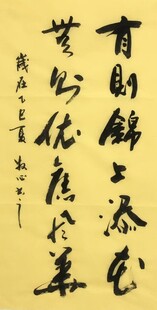 有則錦上添花
無則依舊風華
歲在乙巳夏 牧心書